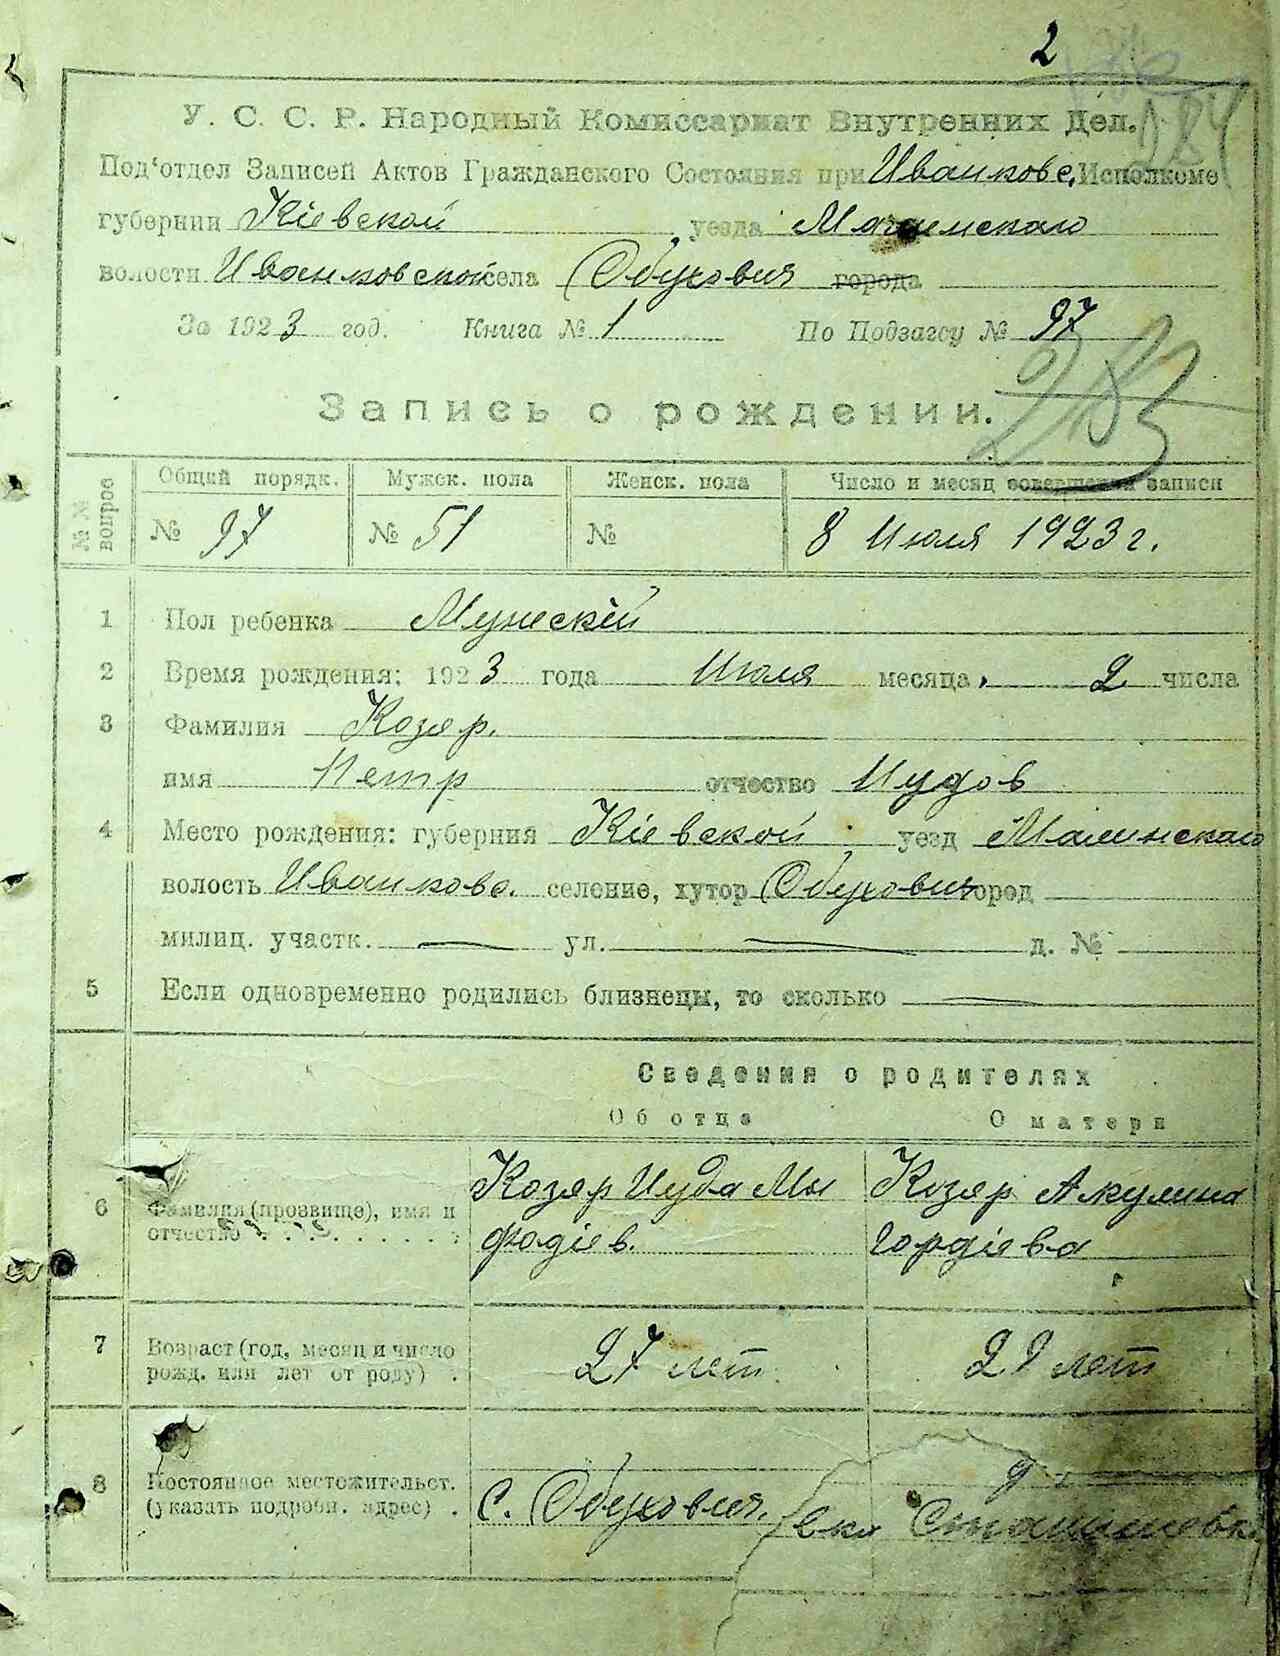 2
284
У. С. С. Р. Народный Комиссариат Внутренних Дел.
Под'отдел Записей Актов Гражданского Состояния при Иванковс. Исполкоме
губернии Кіевской уезда Малинскаго
волости Иванковской села Обуховичи города
За 1923 год. Книга № 1 По Подзагсу № 97
283
Запись о рождении.
№№ вопрос Общий порядк. Мужск. пола Женск. пола Число и месяц совершения записи
№ 97 № 51 № 8 Июля 1923 г.
1 Пол ребенка Мужескій
2 Время рождения: 1923 года Июля месяца 2 числа
3 Фамилия Козяр.
имя Петр отчество Иудов
4 Место рождения: губерния Кіевской уезд Малинскаго
волость Иванковс. селение, хутор Обуховичи город
милиц. участк. — ул. — д. №
5 Если одновременно родились близнецы, то сколько —
Сведения о родителях
Об отце О матери
6 Фамилия (прозвище), имя и отчество Козяр Иуда Мыфодіев. Козяр Акулина Гордіева
7 Возраст (год, месяц и число рожд. или лет от роду) 27 лет 29 лет
8 Постоянное местожительст. (указать подробн. адрес) С. Обуховичи.